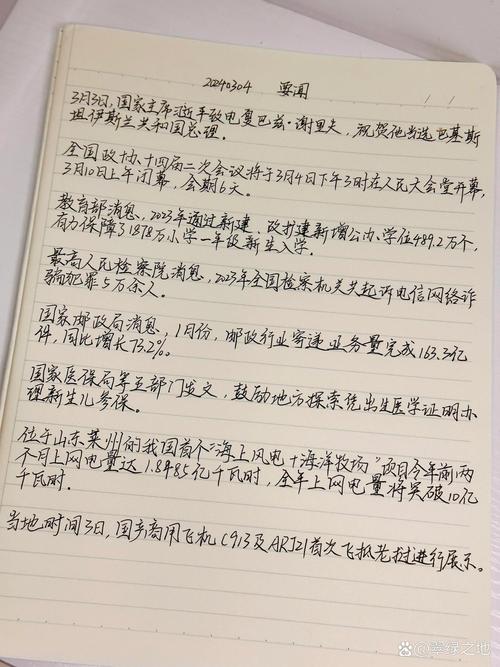 20240304 要闻
3月3日，国家主席习近平致电夏巴兹·谢里夫，祝贺他当选巴基斯
坦伊斯兰共和国总理。
全国政协十四届二次会议将于3月4日下午3时在人民大会堂开幕，
3月10日上午闭幕，会期6天。
教育部消息，2023年通过新建、改扩建新增公办学位489.2万个，
有力保障了1878万小学一年级新生入学。
最高人民检察院消息，2023年全国检察机关共起诉电信网络诈
骗犯罪5万余人。
国家邮政局消息，1月份，邮政行业寄递业务量完成163.3亿
件，同比增长73.2%。
国家医保局等五部门发文，鼓励地方探索凭出生医学证明办
理新生儿参保。
位于山东莱州的我国首个"海上风电+海洋牧场"项目今年前两
个月上网电量达1.8485亿千瓦时，全年上网电量将突破10亿
千瓦时。
当地时间3日，国产商用飞机C913及ARJ21首次飞抵老挝进行展示。
翠绿之地